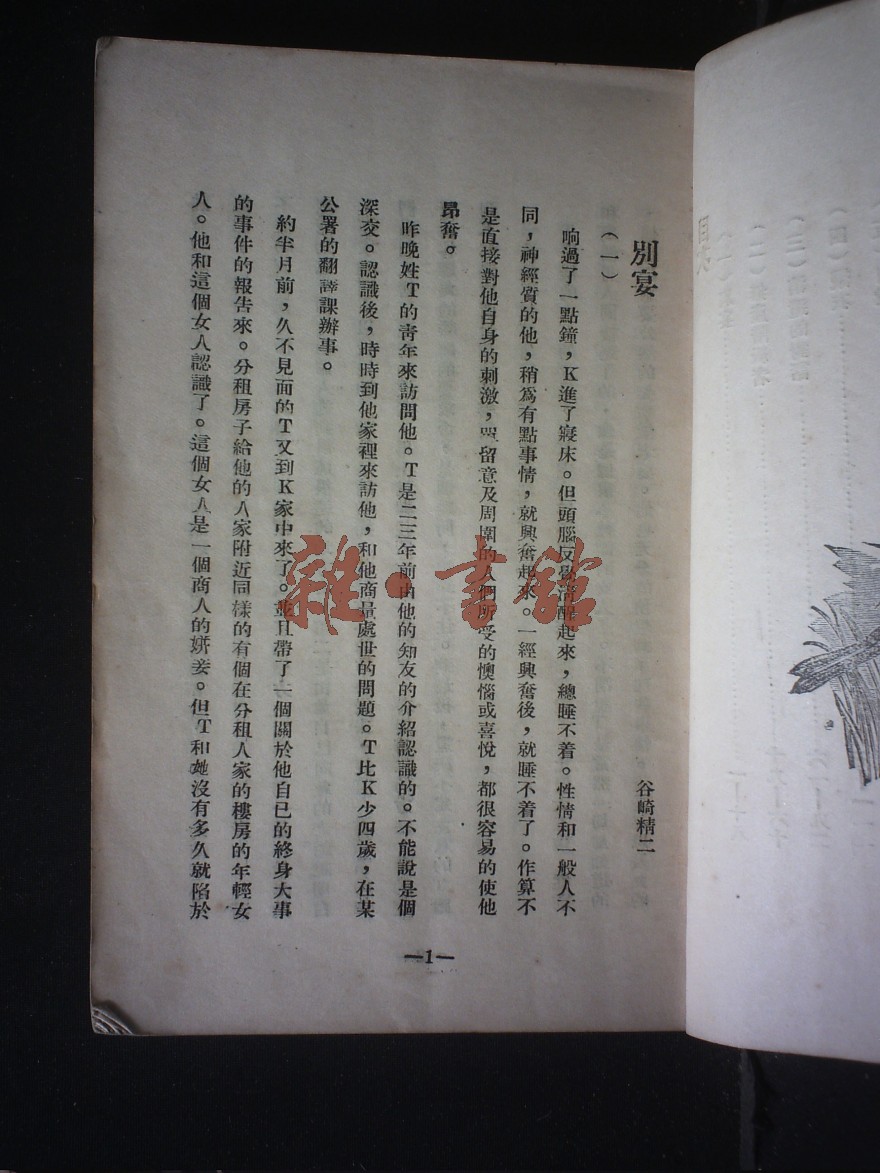 別宴
谷崎精二
(一)
响過了一點鐘，K進了寢床。但頭腦反覺清醒起來，總睡不着。性情和一般人不
同，神經質的他，稍爲有點事情，就興奮起來。一經興奮後，就睡不着了。作算不
是直接對他自身的刺激，留意及周圍的人們所受的懊惱或喜悅，都很容易的使他
昂奮。
昨晚姓T的靑年來訪問他。T是二三年前由他的知友的介紹認識的。不能說是個
深交。認識後，時時到他家裡來訪他，和他商量處世的問題。T比K少四歲，在某
公署的翻譯課辦事。
約半月前，久不見面的T又到K家中來了。並且帶了一個關於他自已的終身大事
的事件的報告來。分租房子給他的人家附近同樣的有個在分租人家的樓房的年輕女
人。他和這個女人認識了。這個女人是一個商人的姘妾。但T和她沒有多久就陷於
—1—
雜·書館
目次